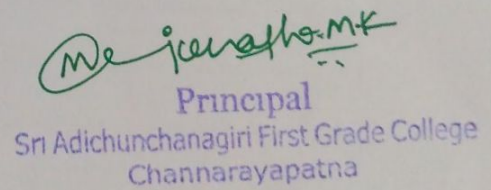 M.K
Principal
Sri Adichunchanagiri First Grade College
Channarayapatna